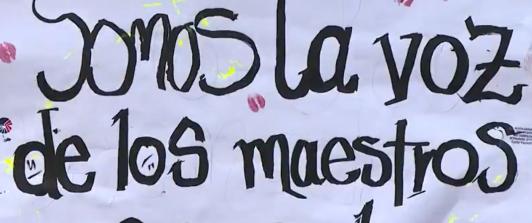 Somos la voz
de los maestros